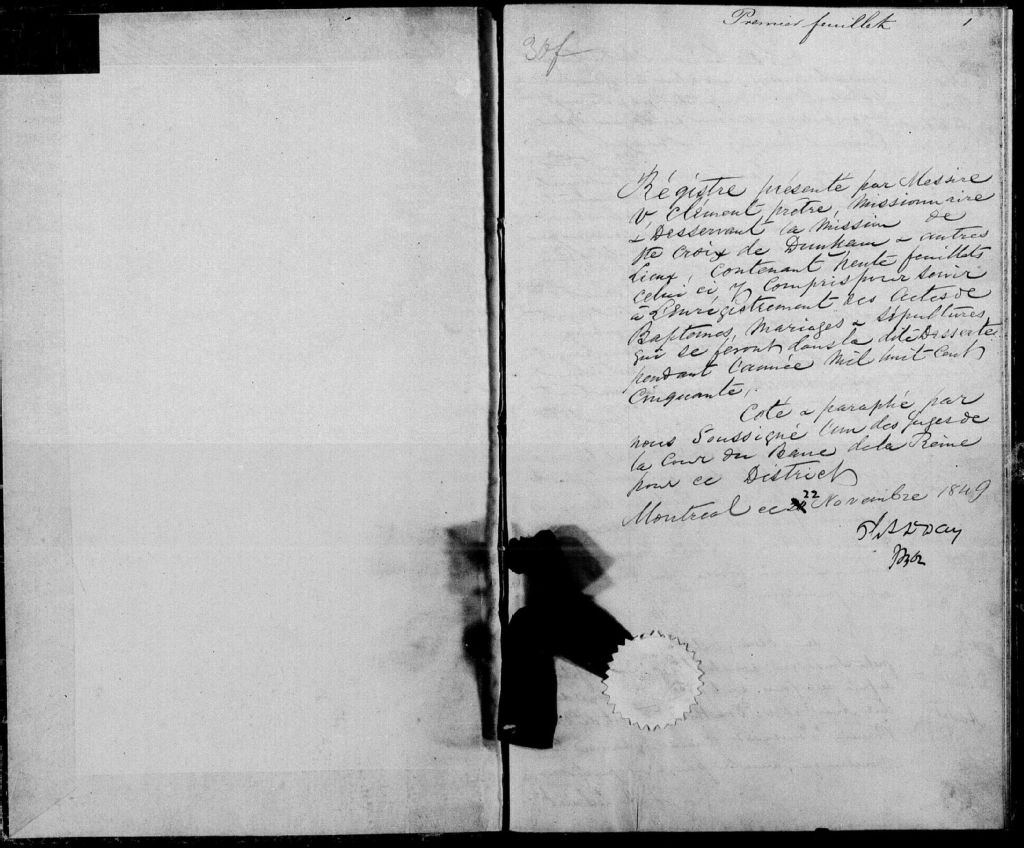 Premier feuillet 1
30f
Régistre présenté par Messire
V Clément, prêtre, missionnaire
& Desservant la Mission de
Ste Croix de Dunham & autres
Lieux, contenant trente feuillets
celui ci y compris pour servir
à L'enrégistrement des Actes de
Baptemes, Mariages & Sépultures
qui se feront dans la dite Desserte
pendant l'année Mil huit Cent
Cinquante,
Coté & paraphé par
nous Soussigné l'un des Juges de
la Cour du Banc de la Reine
pour ce District
22
Montreal ce Novembre 1849
Day